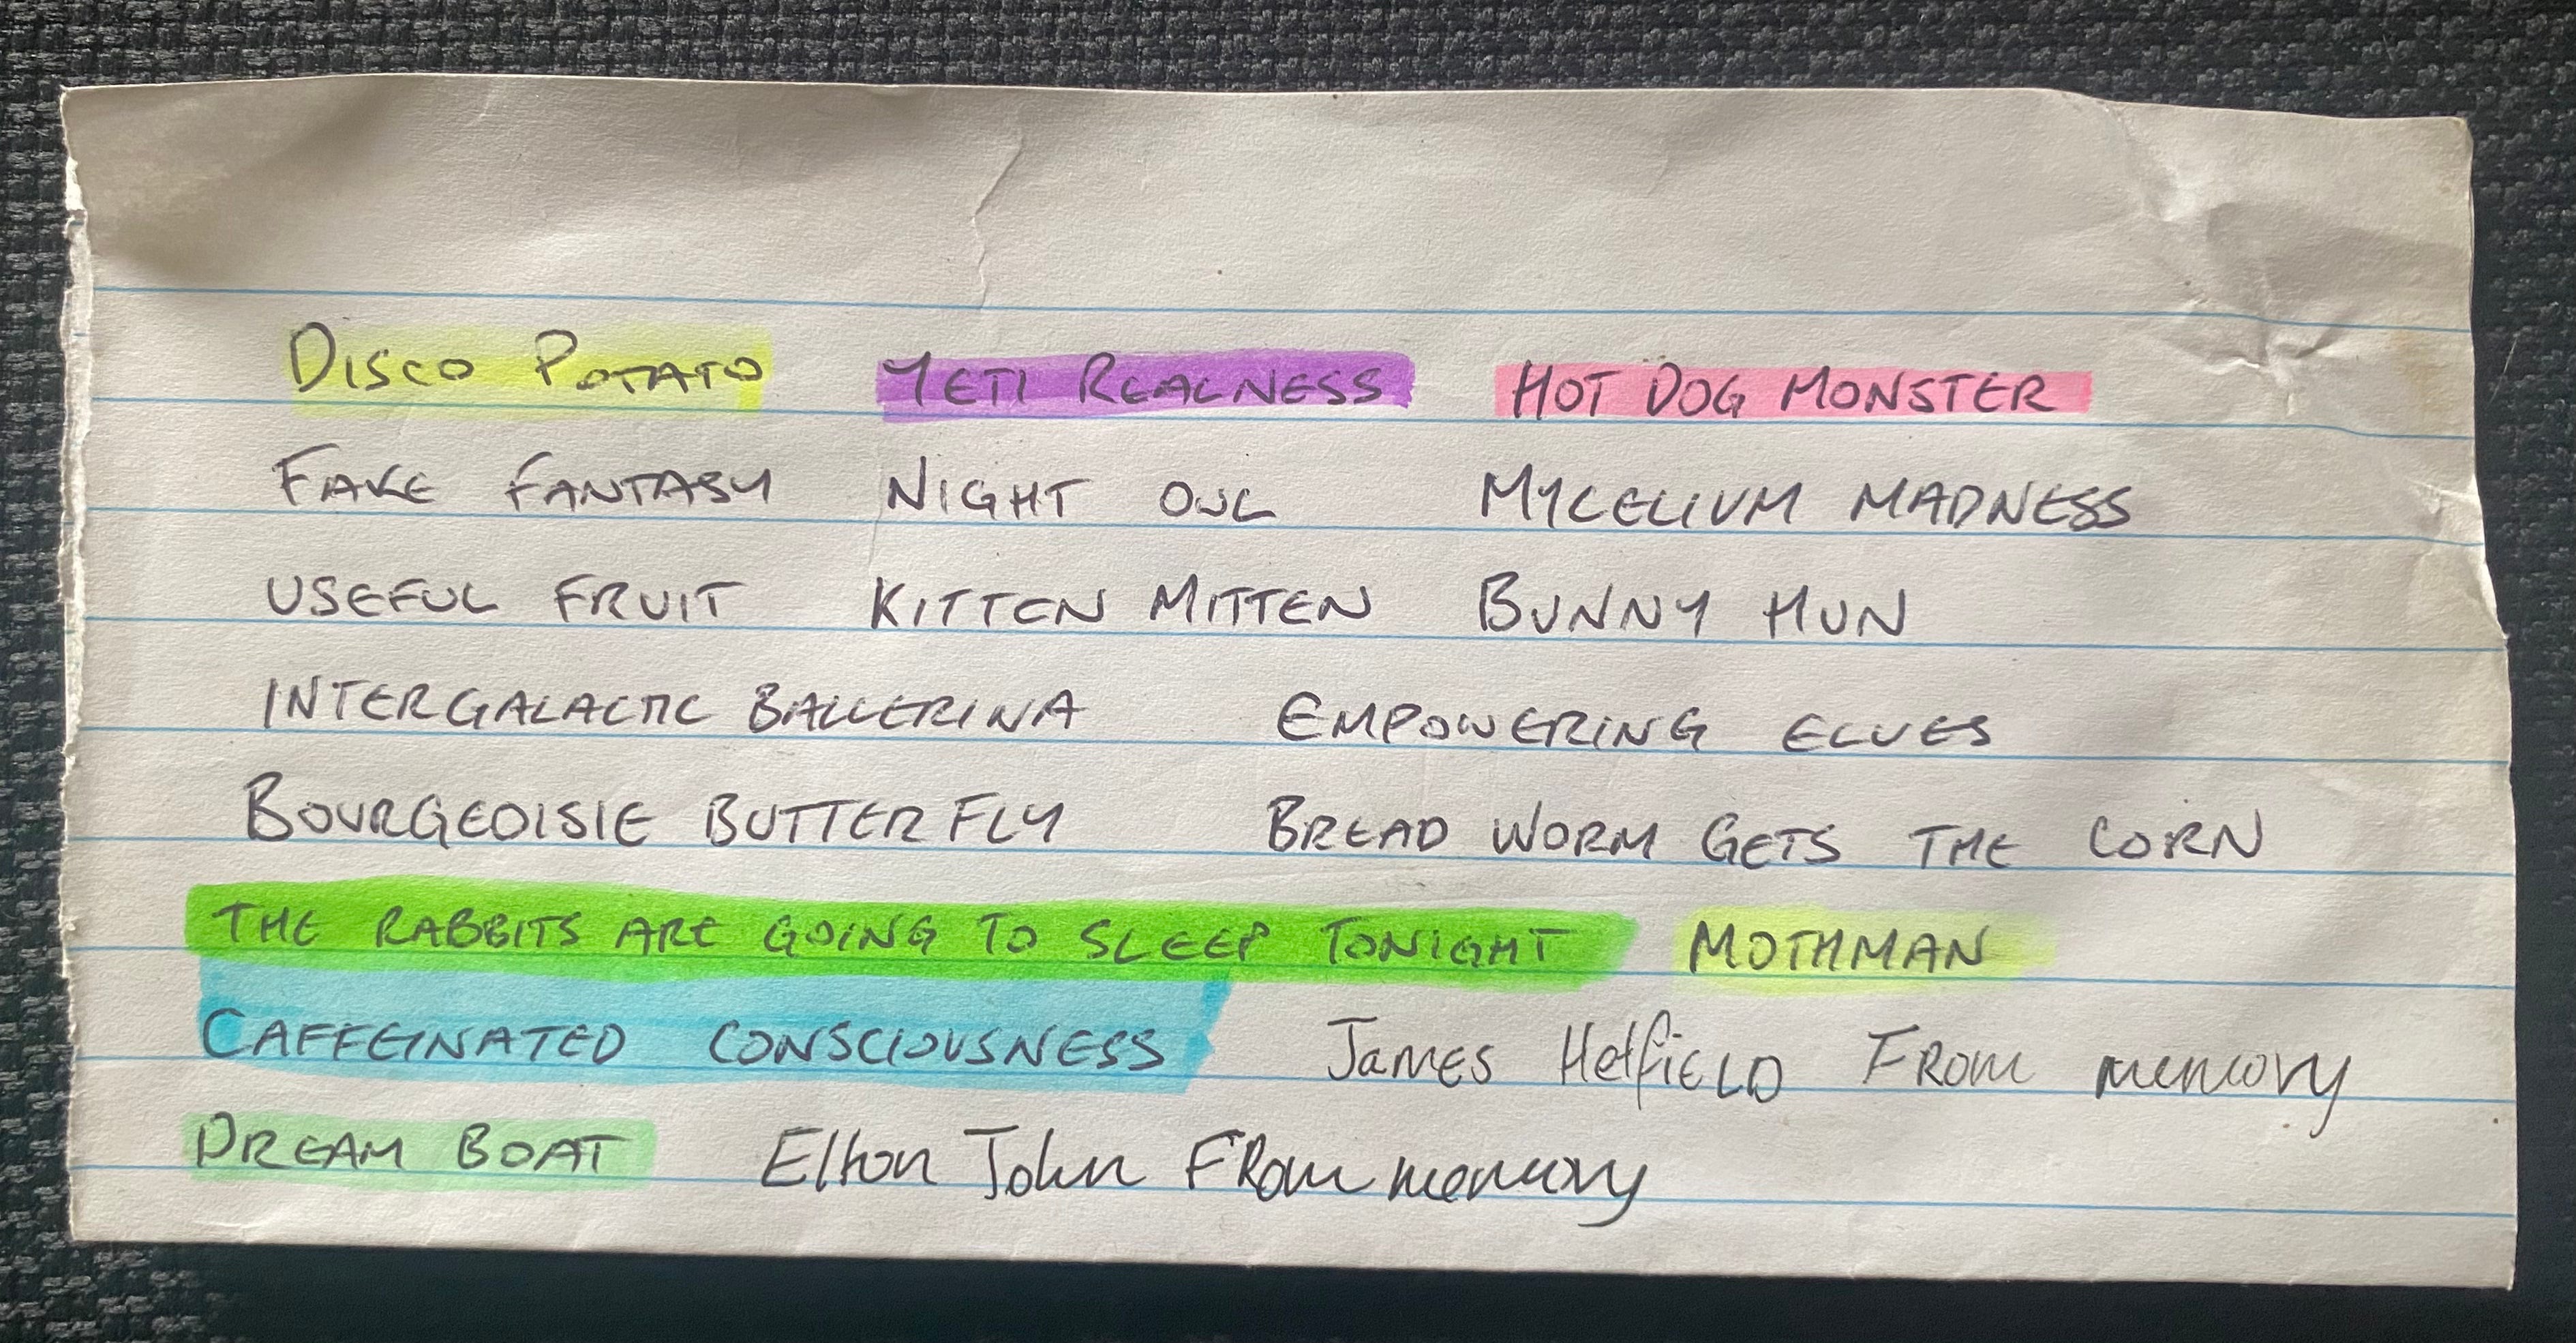 DISCO POTATO YETI REALNESS HOT DOG MONSTER
FAKE FANTASY NIGHT OWL MYCELIUM MADNESS
USEFUL FRUIT KITTEN MITTEN BUNNY HUN
INTERGALACTIC BALLERINA EMPOWERING ELVES
BOURGEOISIE BUTTERFLY BREAD WORM GETS THE CORN
THE RABBITS ARE GOING TO SLEEP TONIGHT MOTHMAN
CAFFEINATED CONSCIOUSNESS James Hetfield From memory
DREAM BOAT Elton John From memory